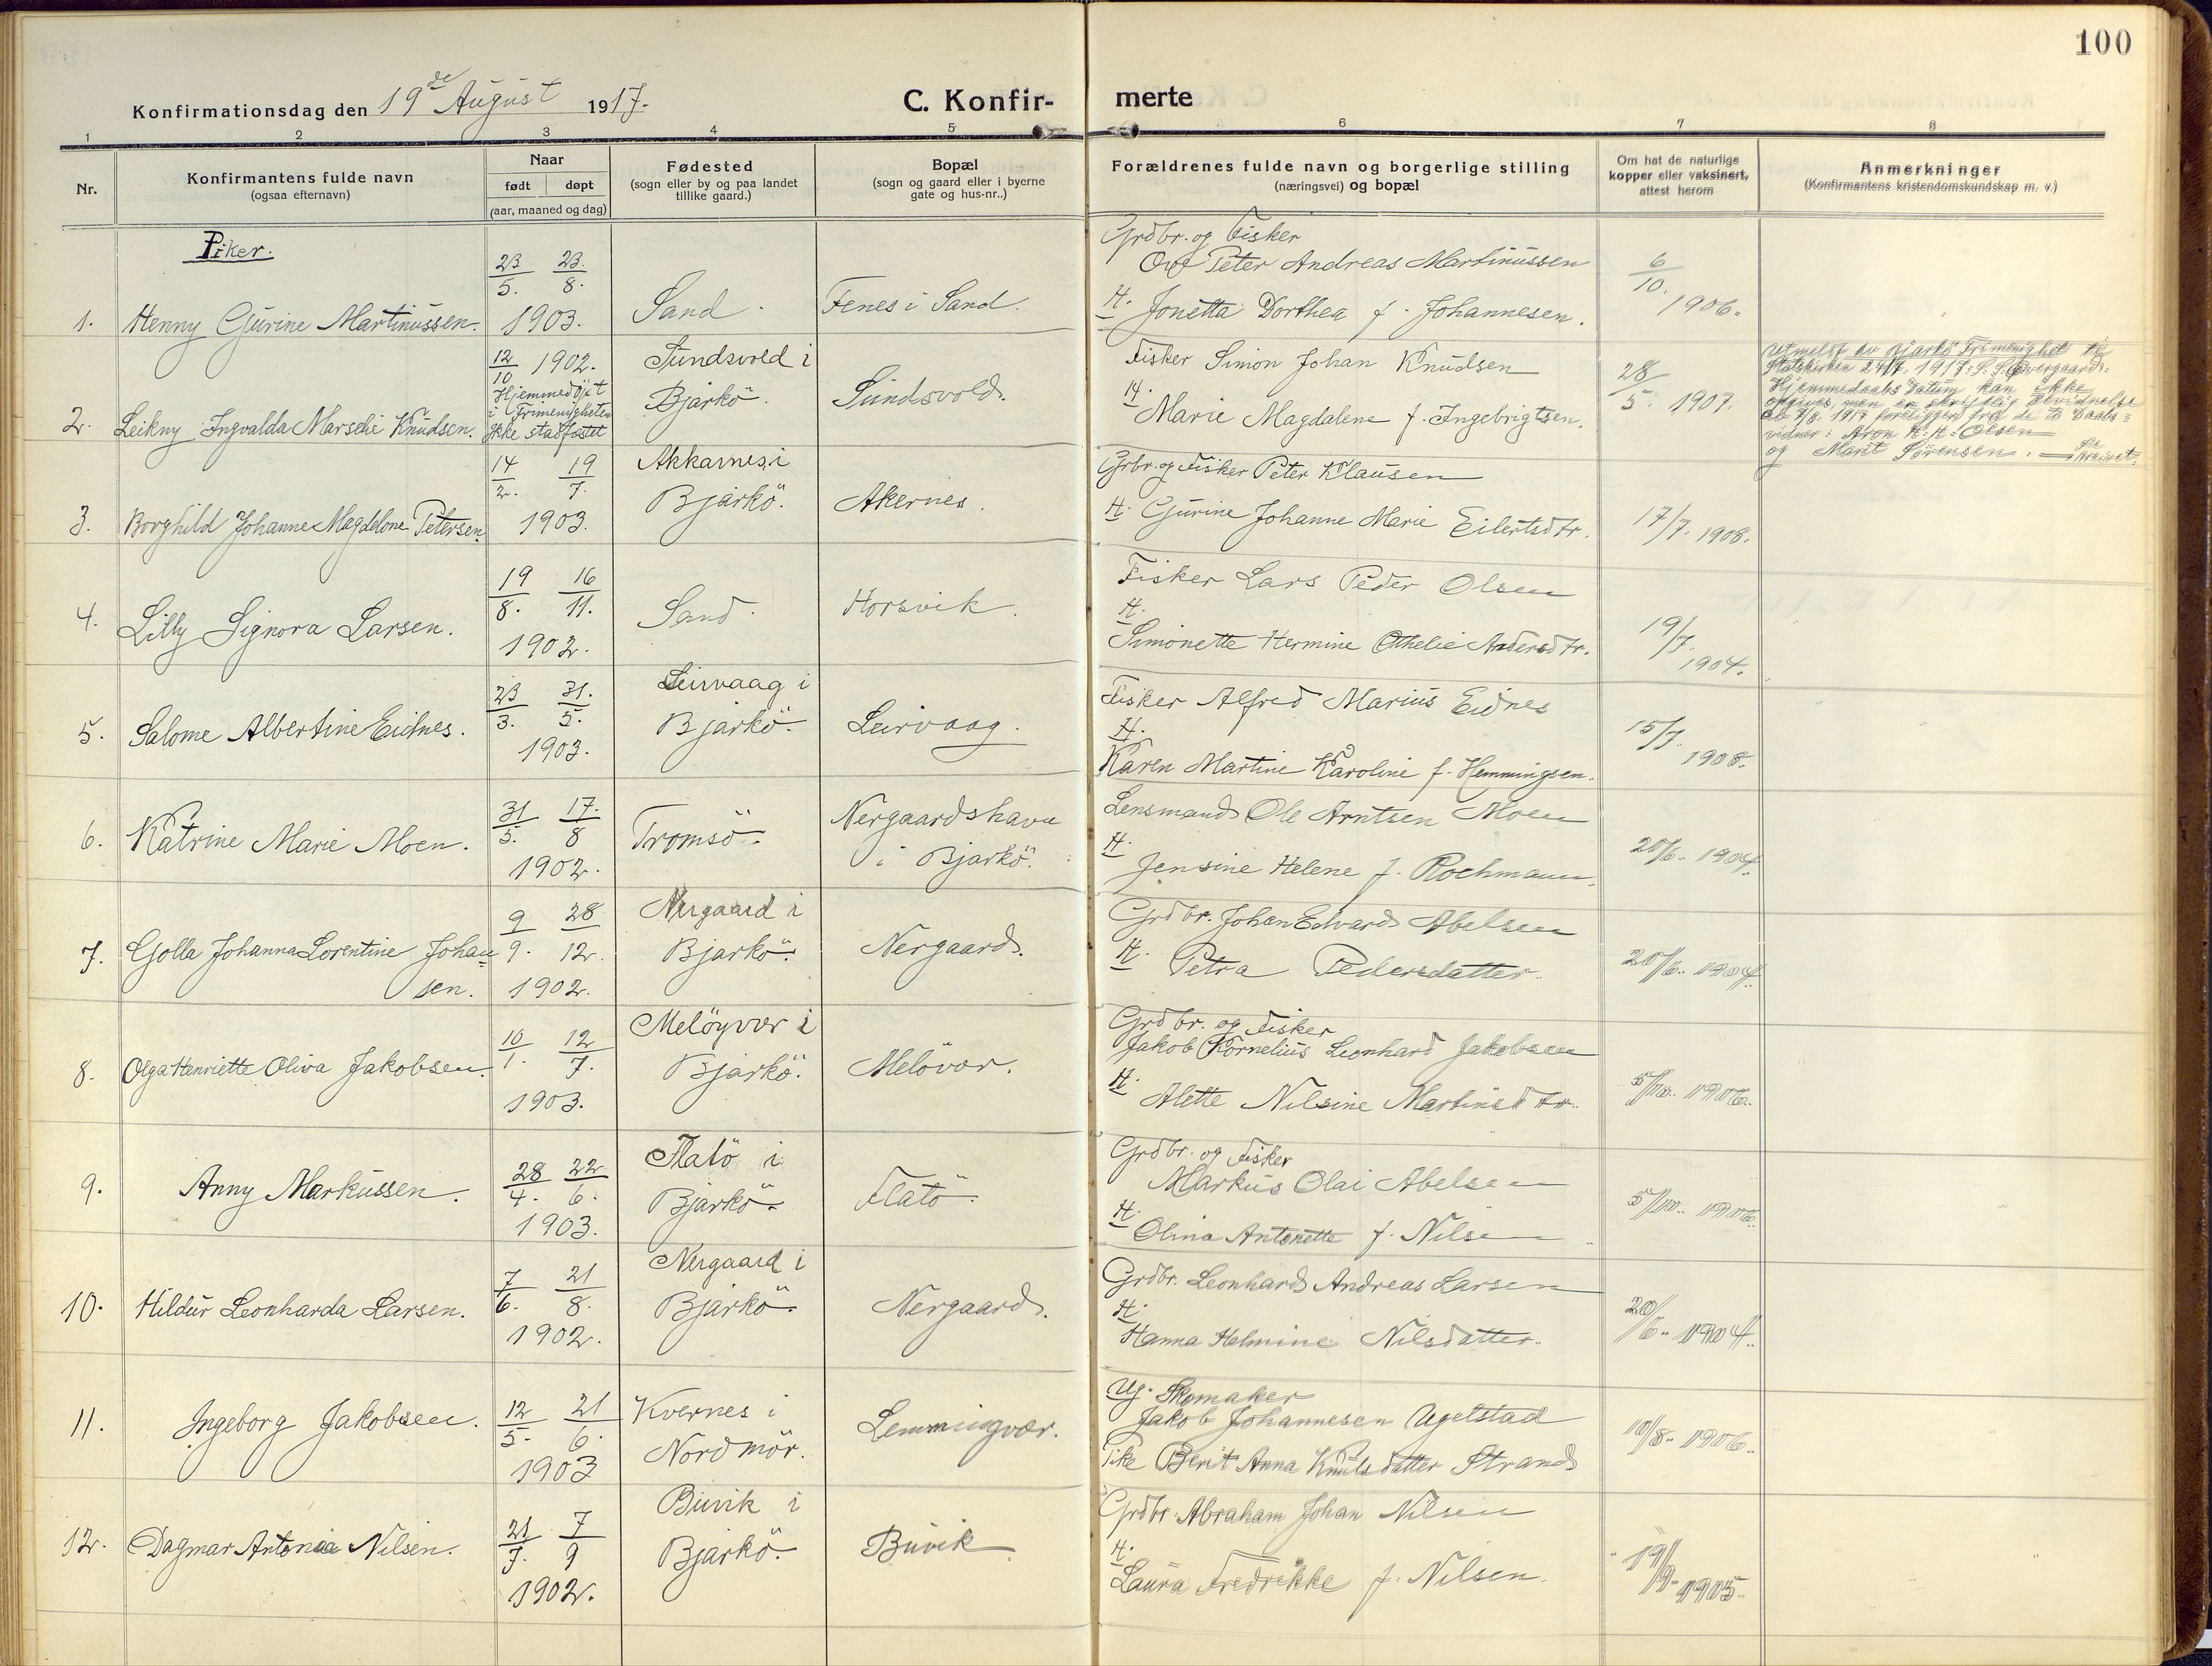 100
Konfirmationsdag den 19de August 1917.
C. Konfir-
merte
1 2 3 4 5 6 7 8
Nr.
Konfirmantens fulde navn
(ogsaa efternavn)
Naar
født døpt
(aar, maaned og dag)
Fødested
(sogn eller by og paa landet
tillike gaard.)
Bopæl
(sogn og gaard eller i byerne
gate og hus-nr..)
Forældrenes fulde navn og borgerlige stilling
(næringsvei) og bopæl
Om hat de naturlige
kopper eller vaksinert,
attest herom
Anmerkninger
(Konfirmantens kristendomskundskap m. v.)
Piker.
1. Henny Gurine Martinussen.
23/5. 23./8.
1903.
Sand.
Fenes i Sand.
Grdbr. og Fisker
Ove Peter Andreas Martinussen
H. Jonetta Dorthea f. Johannesen.
6/10. 1906.
2. Leikny Ingvalda Marselie Knudsen.
12/10 1902.
Hjemmedøpt
i Frimenigheten
Ikke stadfæstet
Sundsvold i
Bjarkö.
Sundsvold.
Fisker Simon Johan Knudsen
H.
Marie Magdalene f. Ingebrigtsen.
28/5. 1907.
Utmeldt av Bjarkö Frimenighet til
Statskirken 24/7. 1917: S. S. Overgaard:
Hjemmedaabs Datum kan ikke
opgives, men en skriftlig Bevidnelse
av 7/8. 1917 foreligger fra de to Daabs=
vidner: Aron H: H: Olsen
og Marit Sørensen.
3. Borghild Johanne Magdelone Petersen.
14/2. 19/7.
1903.
Akkarnes i
Bjarkö.
Akernes.
Grbr. og Fisker Peter Klausen
H. Gurine Johanne Marie Eilertsdtr.
17/7. 1908.
4. Lilly Signora Larsen.
19/8. 16/11.
1902.
Sand.
Horsvik.
Fisker Lars Peder Olsen
H.
Simonette Hermine Othelie Andersdtr.
19/7. 1904.
5. Salome Albertine Eidnes.
23/3. 31./5.
1903.
Leirvaag i
Bjarkö.
Leirvaag.
Fisker Alfred Marius Eidnes
H.
Karen Martine Karoline f. Hemmingsen.
15/7. 1908.
6. Katrine Marie Moen.
31/5. 17./8
1902.
Tromsö.
Nergaardshavn
i Bjarkö.
Lensmand Ole Arntsen Moen
H.
Jensine Helene f. Rochmann.
20/6. 1904.
7. Golla Johanna Lorentine Johan=
sen.
9/9. 28/12.
1902.
Nergaard i
Bjarkö.
Nergaard.
Grdbr. Johan Edvard Abelsen
H. Petra Pedersdatter.
20/6. 1904.
8. Olga Henriette Oliva Jakobsen.
10/1. 12/7.
1903.
Melöyvær i
Bjarkö.
Melövær.
Grdbr. og Fisker
Jakob Kornelius Leonhard Jakobsen
H. Alette Nilsine Martinsdtr.
5/10. 1906.
9. Anny Markussen.
28/4. 22/6.
1903.
Flatö i
Bjarkö.
Flatö.
Grdbr. og Fisker
Markus Olai Abelsen
H. Olina Antonette f. Nilsen
5/10. 1906.
10. Hildur Leonharda Larsen.
7/6. 21/8.
1902.
Nergaard i
Bjarkö.
Nergaard.
Grdbr. Leonhard Andreas Larsen
H.
Hanna Helmine Nilsdatter.
20/6. 1904.
11. Ingeborg Jakobsen.
12/5. 21/6.
1903
Kvernes i
Nordmör.
Lemmingvær.
Ug. Skomaker
Jakob Johannesen Ugelstad
Pike Berit Anna Knutsdatter Strand
10/8. 1906.
12. Dagmar Antonia Nilsen.
21/7. 7/9
1902.
Buvik i
Bjarkö.
Buvik.
Grdbr. Abraham Johan Nilsen
H.
Laura Fredrikke f. Nilsen.
19/9. 1905.